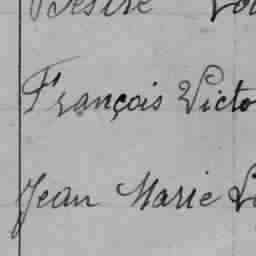 Désiré
François Victo
Jean Marie L